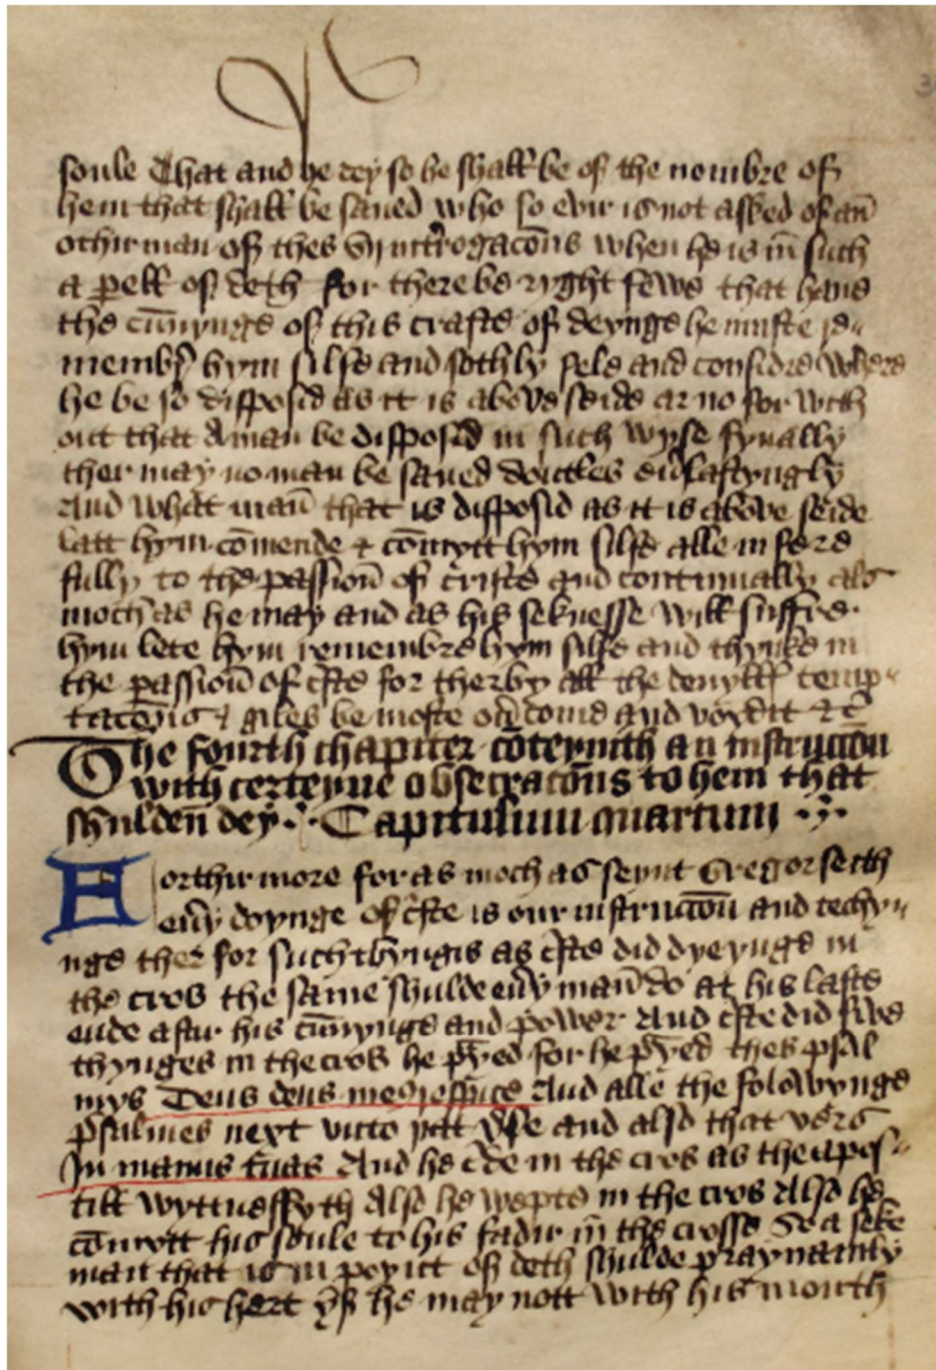 soule That and he dey so he shall be of the nombre of
hem that shall be saued who so euir is not asked of an
othir man of thes vij int'rogacōns when he is in such
a pell of deth For there be ryght fewe that haue
the cūnynge of this crafte of deynge he muste re-
membr hym silfe and sothly fele and considre where
he be so disposid as it is above seide ar no for with
out that a man be disposed in such wyse fynally
ther may no man be saued doutles eu'lastyngly
And what man that is disposid as it is above seide
latt hym cōmende & cōmytt hym silfe alle in fere
fully to the passioū of criste and continually als
moch as he may and as his seknesse will suffre
hym lete hym remembre hym silfe and thynke in
the passioū of cr̄ste for therby all the deuyll temp-
tacōns & giles be moste ou'come and voydit &c
The fourth chapiter cōteynith an instruccōn
with certeyne obsecracōns to hem that
shulden dey Capitulum quartum
Forthir more for as moch as seynt Gregor seith
eu'y doynge of cr̄ste is our instruccōn and techy-
nge ther for such thyngis as cr̄ste did dyeynge in
the cros the same shulde eu'y man do at his laste
ende aftir his cūnynge and power And cr̄ste did five
thynges in the cros he p̄yed for he p̄yed thes psal
mys Deus deus meus respice And alle the folowynge
psulmes next vnto þatt v'se and also that vers
In manus tuas And he c'de in the cros as the apos-
till wyttnessyth Also he wepte in the cros Also he
cōmytt his soule to his fadir in the crosse So a seke
man that is in poynt of deth shulde pray namly
with his hert yf he may nott with his mouth